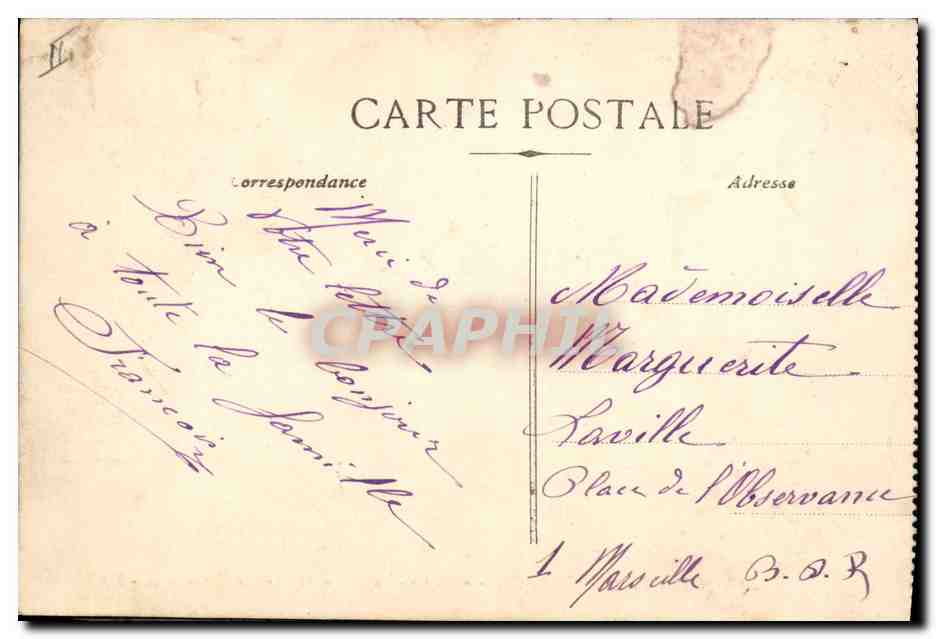 CARTE POSTALE
Correspondance
Adresse
Merci de
votre lettre
Bien le bonjour
à toute la famille
François
Mademoiselle
Marguerite
Laville
Place de l'Observance
1 Marseille B. d. R
CPAPHIL